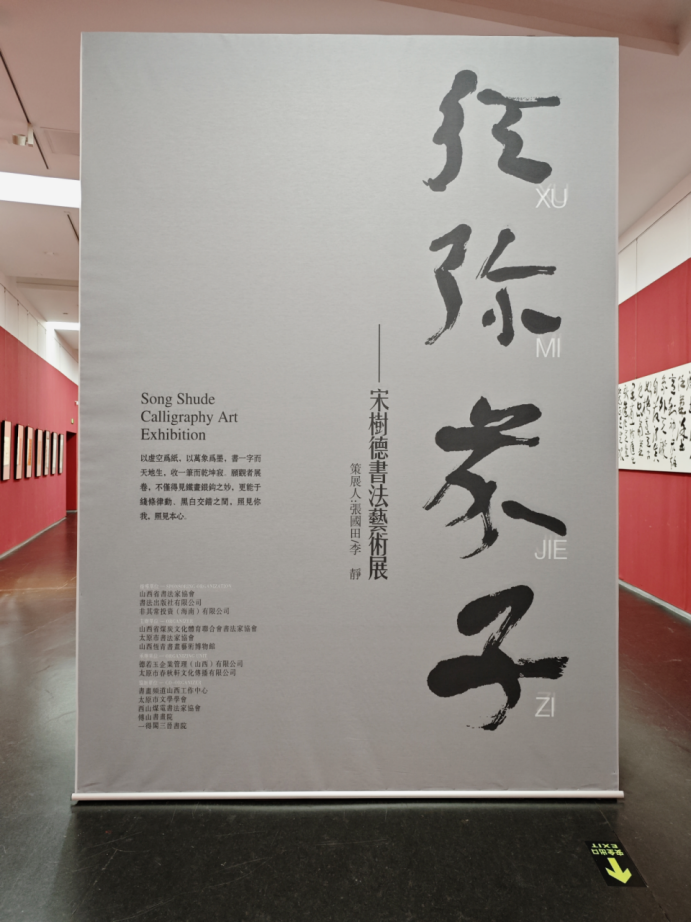 须弥芥子
XU
MI
JIE
ZI
——宋樹德書法藝術展
策展人:張國田/李 靜
Song Shude
Calligraphy Art
Exhibition
以虛空爲紙，以萬象爲墨，書一字而
天地生，收一筆而乾坤寂．願觀者展
卷，不僅得見鐵畫銀鉤之妙，更能于
綫條律動、黑白交錯之間，照見你
我，照見本心．
山西省書法家協會
書法出版社有限公司
非其常投資（海南）有限公司
山西省煤炭文化體育聯合會書法家協會
太原市書法家協會
德若主企業管理（山西）有限公司
太原市春秋軒文化傳播有限公司
書畫頻道山西工作中心
太原市文學學會
西山煤電書法家協會
安全出口
EXIT